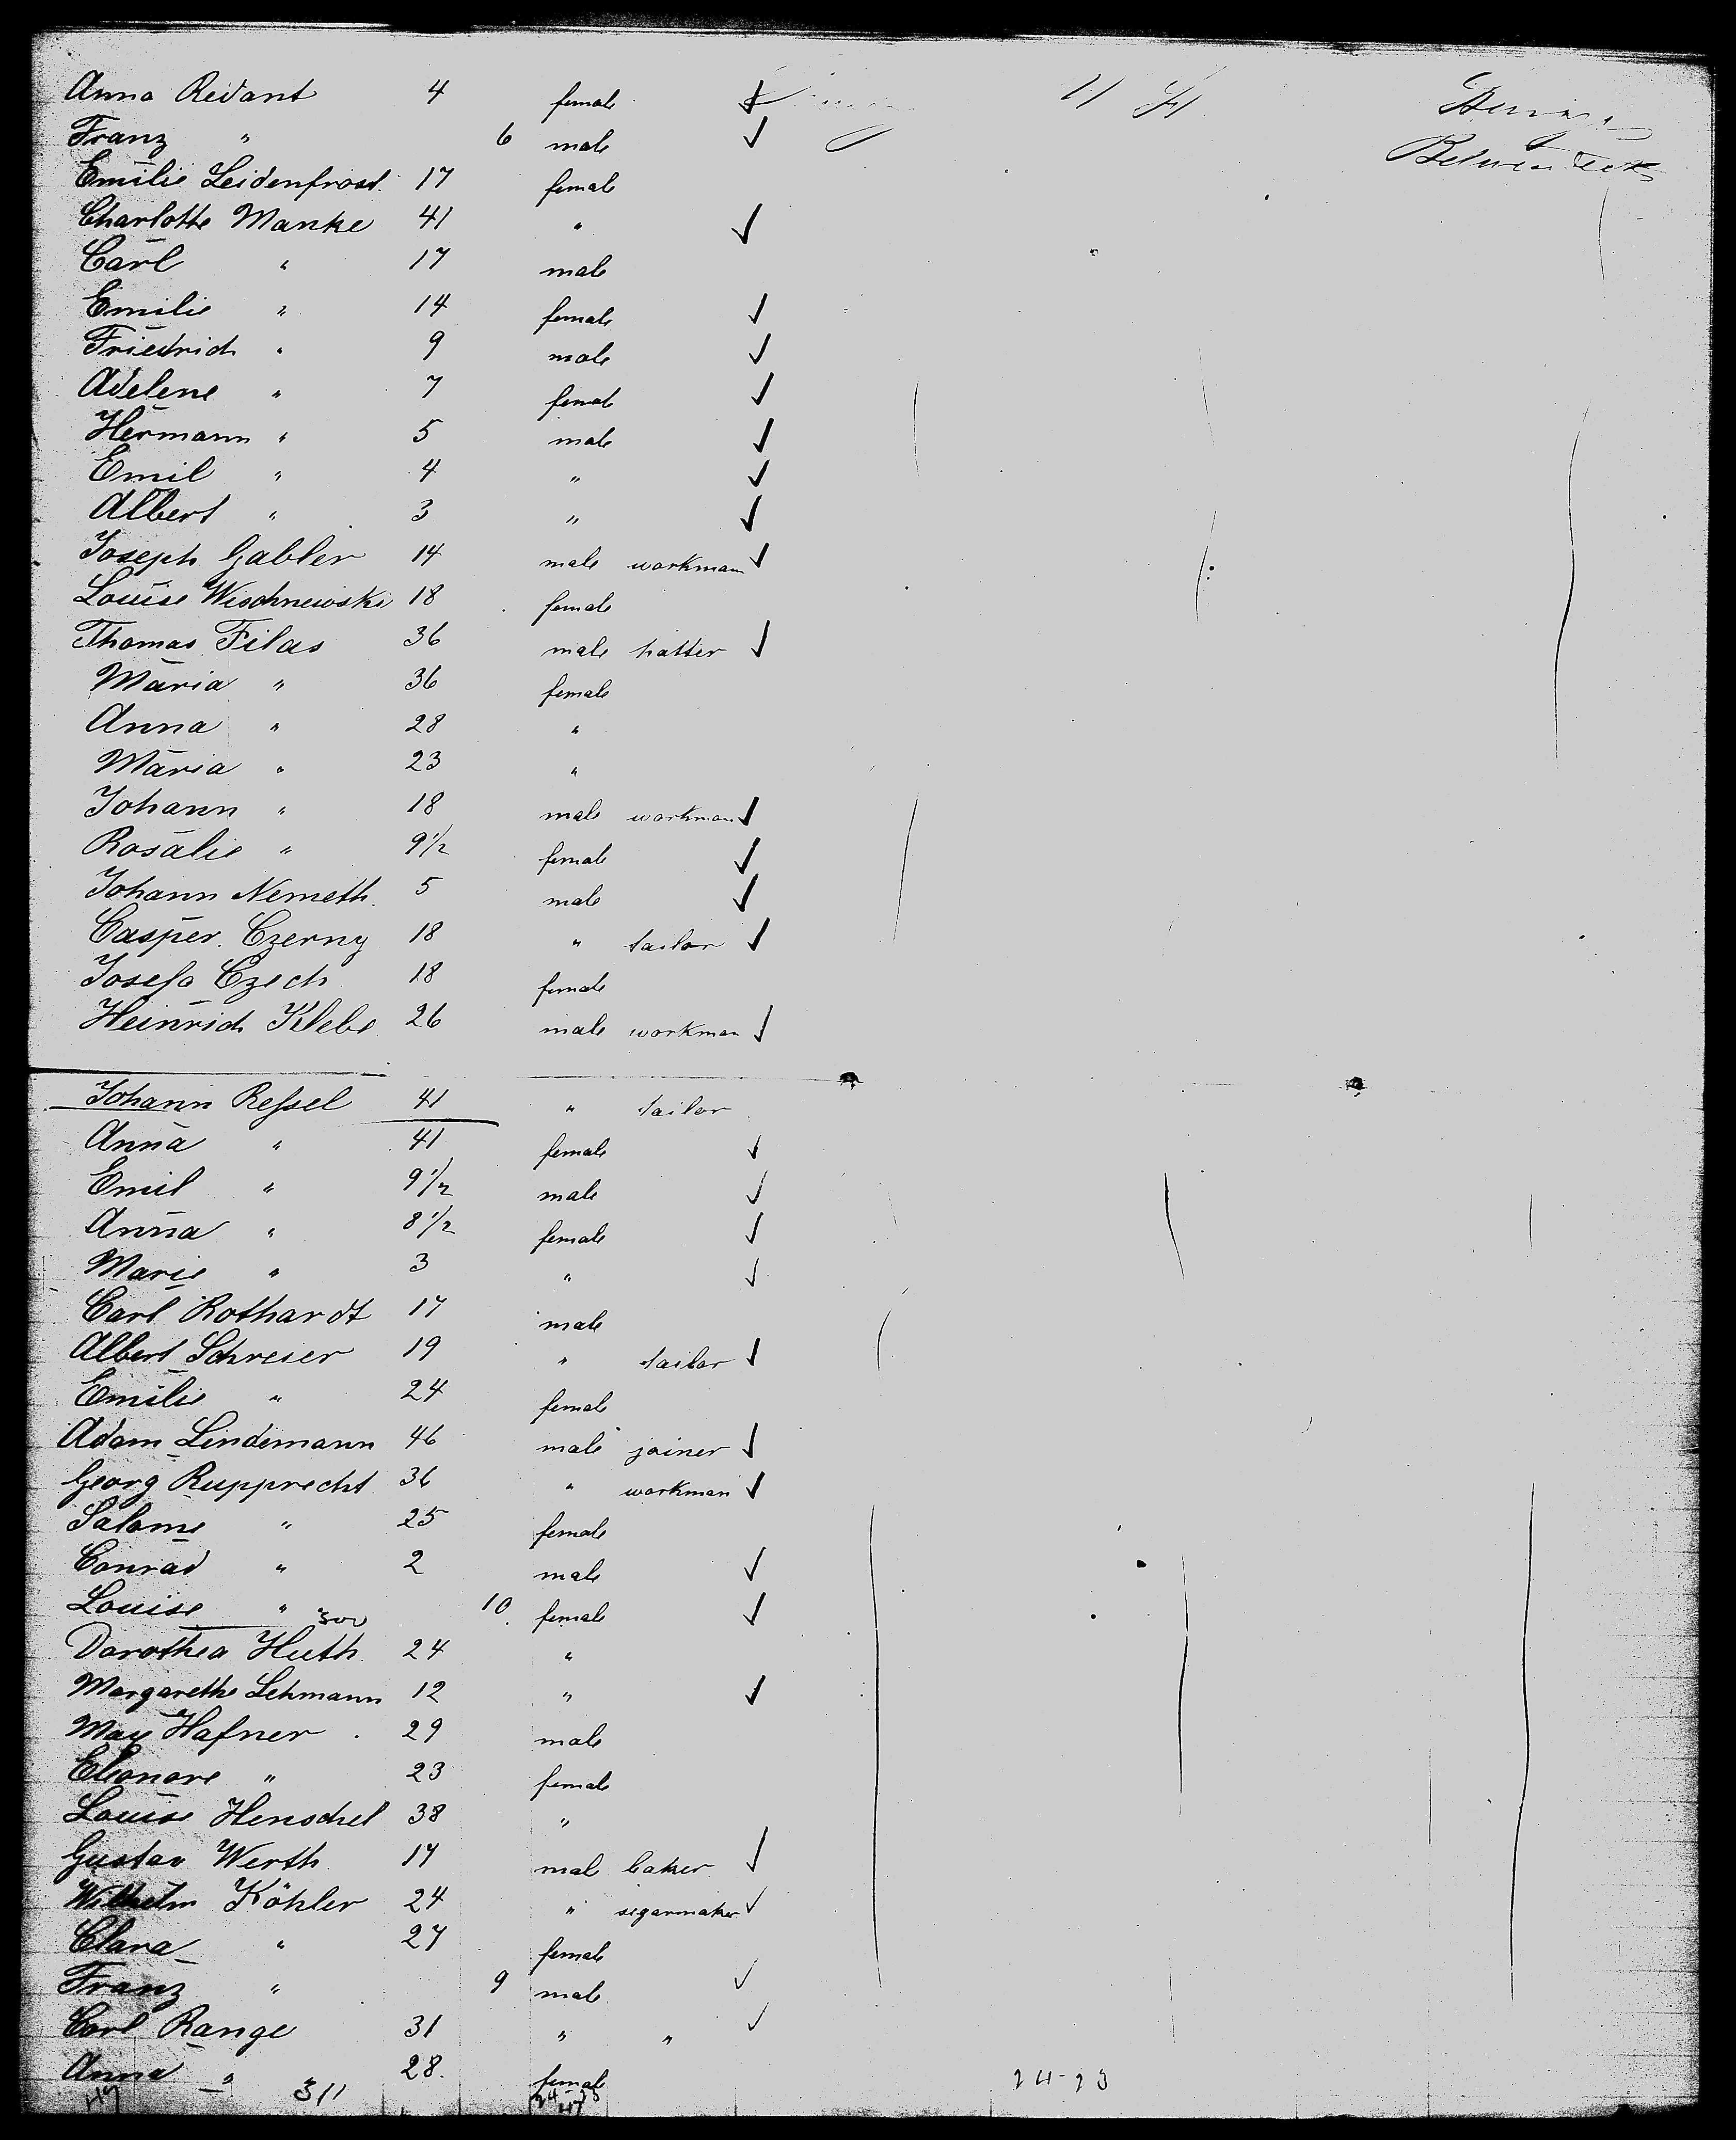 Anna Redant 4 female
Franz " 6 male
Emilie Leidenfrost 17 female
Charlotte Manke 41 "
Carl " 17 male
Emilie " 14 female
Friedrich " 9 male
Adelene " 7 female
Hermann " 5 male
Emil " 4 "
Albert " 3 "
Joseph Gabler 14 male workman
Louise Wischnewski 18 female
Thomas Filas 36 male hatter
Maria " 36 female
Anna " 28 "
Maria " 23 "
Johann " 18 male workman
Rosalie " 9 1/2 female
Johann Nemeth 5 male
Casper Czerny 18 " tailor
Josefa Czech 18 female
Heinrich Klebe 26 male workman
Johann Reſsel 41 " tailor
Anna " 41 female
Emil " 9 1/2 male
Anna " 8 1/2 female
Marie " 3 "
Carl Rothardt 17 male
Albert Schreier 19 " tailor
Emilie " 24 female
Adam Lindemann 46 male joiner
Georg Rupprecht 36 " workman
Salome " 25 female
Conrad " 2 male
Louise " 10 female
300
Dorothea Huth 24 "
Margarethe Lehmann 12 "
Max Hafner 29 male
Eleonore " 23 female
Louise Henschel 38 "
Gustav Werth 17 male baker
Wilhelm Köhler 24 " segarmaker
Clara " 27 female
Franz " 9 male
Carl Range 31 " "
Anna " 28 female
47 311 24-23 24-23
47